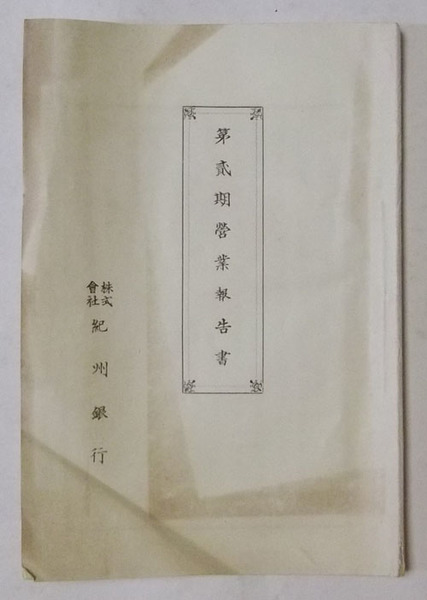 第貳期營業報告書
株式會社紀州銀行